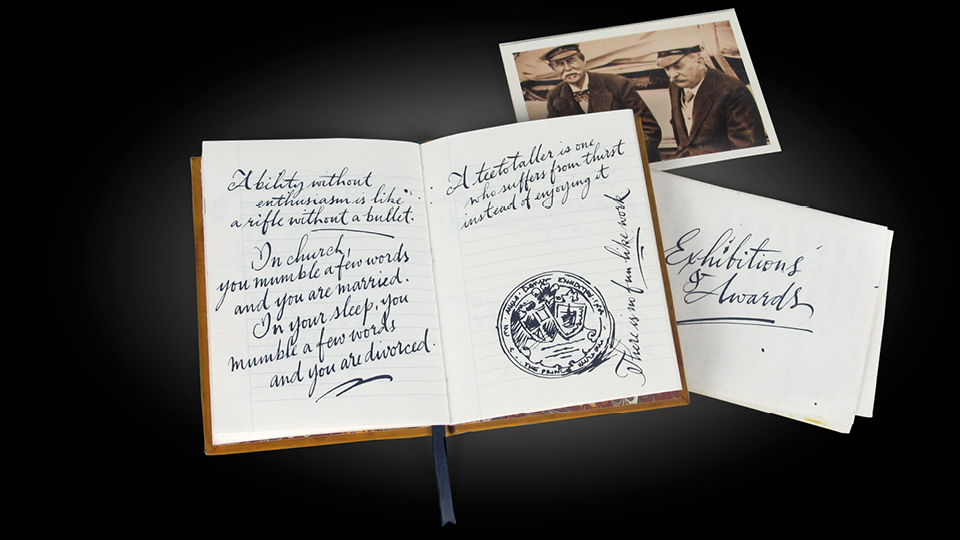 Ability without
enthusiasm is like
a rifle without a bullet.
In church,
you mumble a few words
and you are married.
In your sleep, you
mumble a few words
and you are divorced.
A teetotaller is one
who suffers from thirst
instead of enjoying it
There is no fun like work
THE PRINC
Exhibitions
& Awards